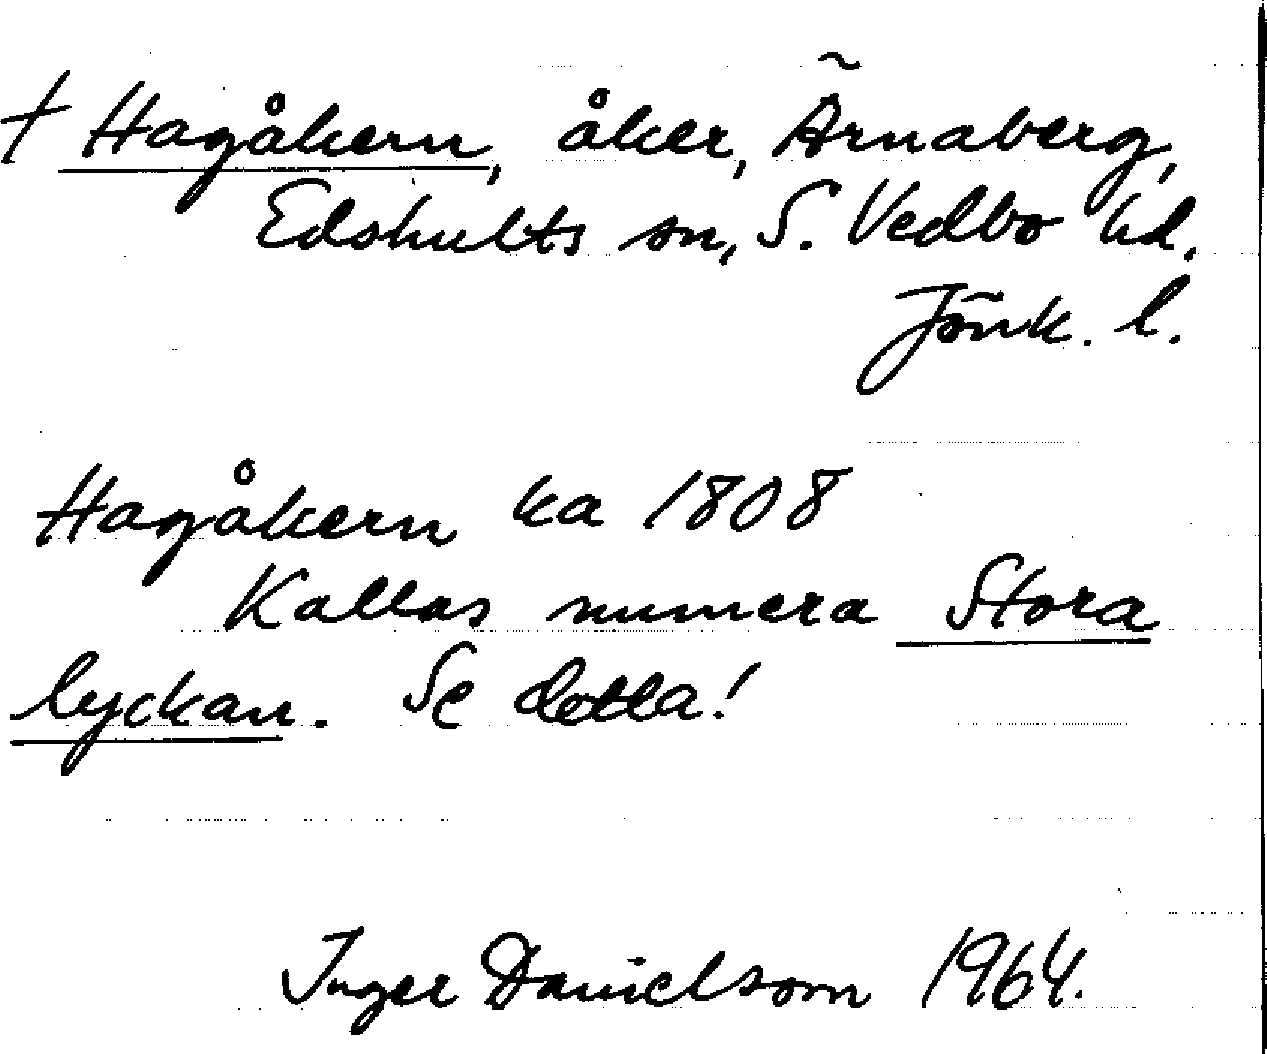 † Hagåkern, åker, Ärnaberg,
Edshults sn, S. Vedbo hd.
Jönk. l.
Hagåkern ka 1808
Kallas numera Stora
lyckan. Se detta!
Inger Danielsom 1964.